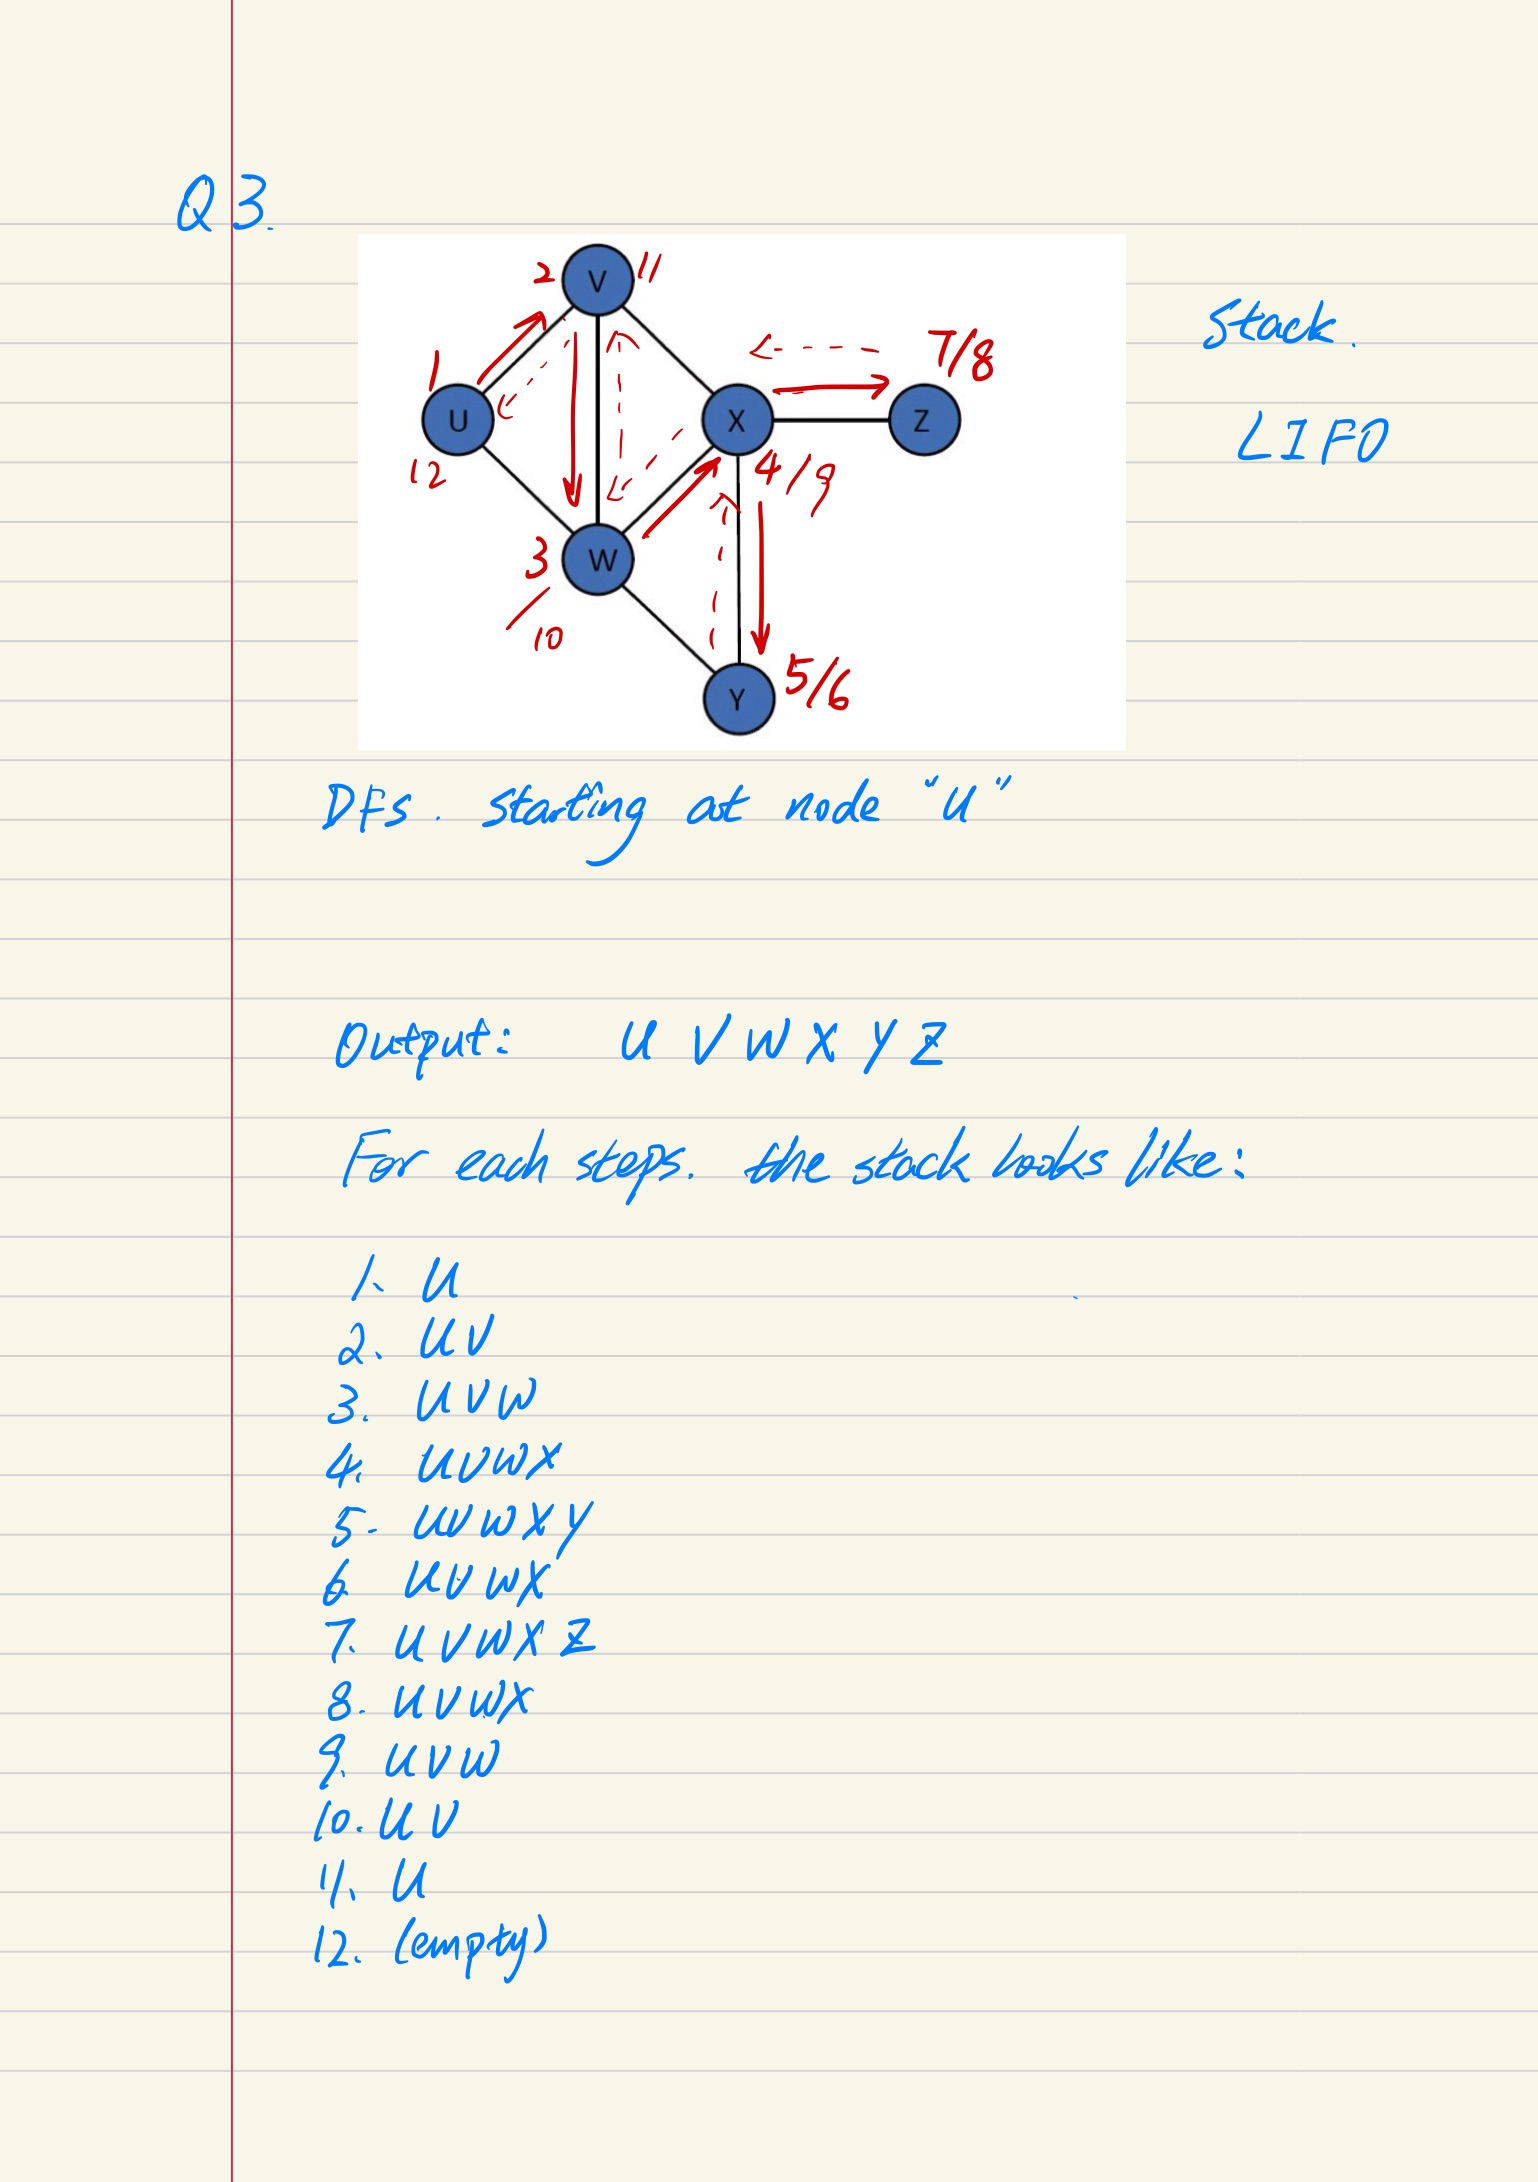 Q3.
2 V 11
Stack.
1
7/8
U
X
Z
12
4/9
LIFO
3 W
10
Y 5/6
DFS. starting at node "U"
Output: U V W X Y Z
For each steps. the stack looks like:
1. U
2. UV
3. UVW
4. UVWX
5. UVWXY
6 UVWX
7. UVWXZ
8. UVWX
9. UVW
10. UV
11. U
12. (empty)